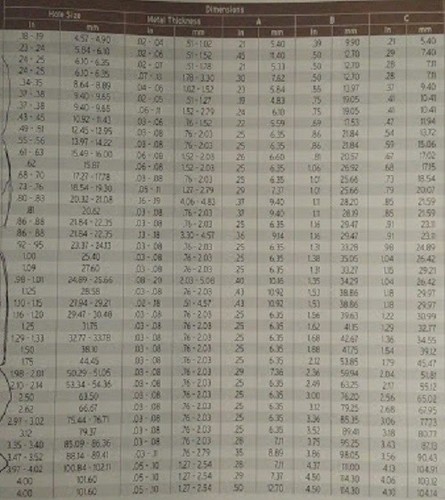 Dimensions
Hole Size Metal Thickness A B C
in mm in mm in mm in mm in mm
.18 - .19 4.57 - 4.90 .02 - .04 .51 - 1.02 .21 5.40 .39 9.90 .21 5.40
.23 - .24 5.84 - 6.10 .02 - .06 .51 - 1.52 .45 11.40 .50 12.70 .29 7.40
.24 - .25 6.10 - 6.35 .02 - .07 .51 - 1.78 .21 5.33 .50 12.70 .28 7.11
.24 - .25 6.10 - 6.35 .07 - .13 1.78 - 3.30 .30 7.62 .50 12.70 .28 7.11
.34 - .35 8.64 - 8.89 .04 - .06 1.02 - 1.52 .23 5.84 .55 13.97 .37 9.40
.37 - .38 9.40 - 9.65 .02 - .05 .51 - 1.27 .19 4.83 .75 19.05 .41 10.41
.37 - .38 9.40 - 9.65 1.52 - 2.79 .24 6.10 .75 19.05 .41 10.41
.43 - .45 10.92 - 11.43 .03 - .06 .76 - 1.52 .22 5.59 .53 .47 11.94
.49 - .51 12.45 - 12.95 .03 - .08 .76 - 2.03 .25 6.35 .86 21.84 .54 13.72
.55 - .56 13.97 - 14.22 .03 - .08 .76 - 2.03 .25 6.35 .86 21.84 .59 15.06
.61 - .63 15.49 - 16.00 .06 - .08 1.52 - 2.03 .26 6.60 .81 20.57 .67 17.02
.62 15.87 .06 - .08 1.52 - 2.03 .25 6.35 1.06 26.92 .68 17.15
.68 - .70 17.27 - 17.78 .03 - .08 .76 - 2.03 .25 6.35 1.01 25.66 .73 18.54
.73 - .76 18.54 - 19.30 .05 - .11 1.27 - 2.79 .29 7.37 1.01 25.66 .79 20.07
.80 - .83 20.32 - 21.08 .16 - .19 4.06 - 4.83 .37 9.40 1.11 28.20 .85 21.59
.81 20.62 .03 - .08 .76 - 2.03 .37 9.40 1.11 28.19 .85 21.59
.86 - .88 21.84 - 22.35 .03 - .08 .76 - 2.03 .25 6.35 1.16 29.47 .91 23.11
.86 - .88 21.84 - 22.35 .13 - .18 3.30 - 4.57 .36 9.14 1.16 29.47 .91 23.11
.92 - .95 23.37 - 24.13 .03 - .08 .76 - 2.03 .25 6.35 1.31 33.28 .98 24.89
1.00 25.40 .03 - .08 .76 - 2.03 .25 6.35 1.38 35.05 1.04 26.42
1.09 27.60 .03 - .08 .76 - 2.03 .25 6.35 1.31 33.27 1.15 29.21
.98 - 1.01 24.89 - 25.66 .08 - .20 2.03 - 5.08 .40 10.16 1.35 34.29 1.04 26.42
1.125 28.58 .03 - .08 .76 - 2.03 .43 10.92 1.53 38.86 1.18 29.97
1.10 - 1.15 27.94 - 29.21 .02 - .18 .51 - 4.57 .43 10.92 1.53 38.86 1.18 29.97
1.16 - 1.20 29.47 - 30.48 .03 - .08 .76 - 2.03 .25 6.35 1.56 39.63 1.22 30.99
1.25 31.75 .03 - .08 .76 - 2.03 .25 6.35 1.62 41.15 1.29 32.77
1.29 - 1.33 32.77 - 33.78 .03 - .08 .76 - 2.03 .25 6.35 1.68 42.67 1.36 34.55
1.50 38.10 .03 - .08 .76 - 2.03 .25 6.35 1.88 47.75 1.54 39.12
1.75 44.45 .03 - .08 .76 - 2.03 .25 6.35 2.12 53.85 1.79 45.47
1.98 - 2.01 50.29 - 51.05 .03 - .08 .76 - 2.03 .29 7.36 2.36 59.94 2.04 51.81
2.10 - 2.14 53.34 - 54.36 .03 - .08 .76 - 2.03 .25 6.35 2.49 63.25 2.17 55.12
2.50 63.50 .03 - .08 .76 - 2.03 .25 6.35 3.00 76.20 2.56 65.02
2.62 66.67 .03 - .08 .76 - 2.03 .25 6.35 3.12 79.25 2.68 67.95
2.97 - 3.02 75.44 - 76.71 .03 - .08 .76 - 2.03 .25 6.35 3.36 85.35 3.06 77.73
3.12 79.37 .03 - .08 .76 - 2.03 .25 6.35 3.52 89.41 3.18 80.77
3.35 - 3.40 85.09 - 86.36 .03 - .08 .76 - 2.03 .28 7.11 3.75 95.25 3.43 87.12
3.47 - 3.52 88.14 - 89.41 .03 - .11 .76 - 2.79 .35 8.89 3.86 98.05 3.56 90.43
3.97 - 4.02 100.84 - 102.11 .05 - .10 1.27 - 2.54 .28 7.11 4.37 111.00 4.13 104.91
4.00 101.60 .05 - .10 1.27 - 2.54 .29 7.37 4.50 114.30 4.06 103.12
4.00 101.60 .05 - .10 1.27 - 2.54 .50 12.70 4.50 114.30 4.10